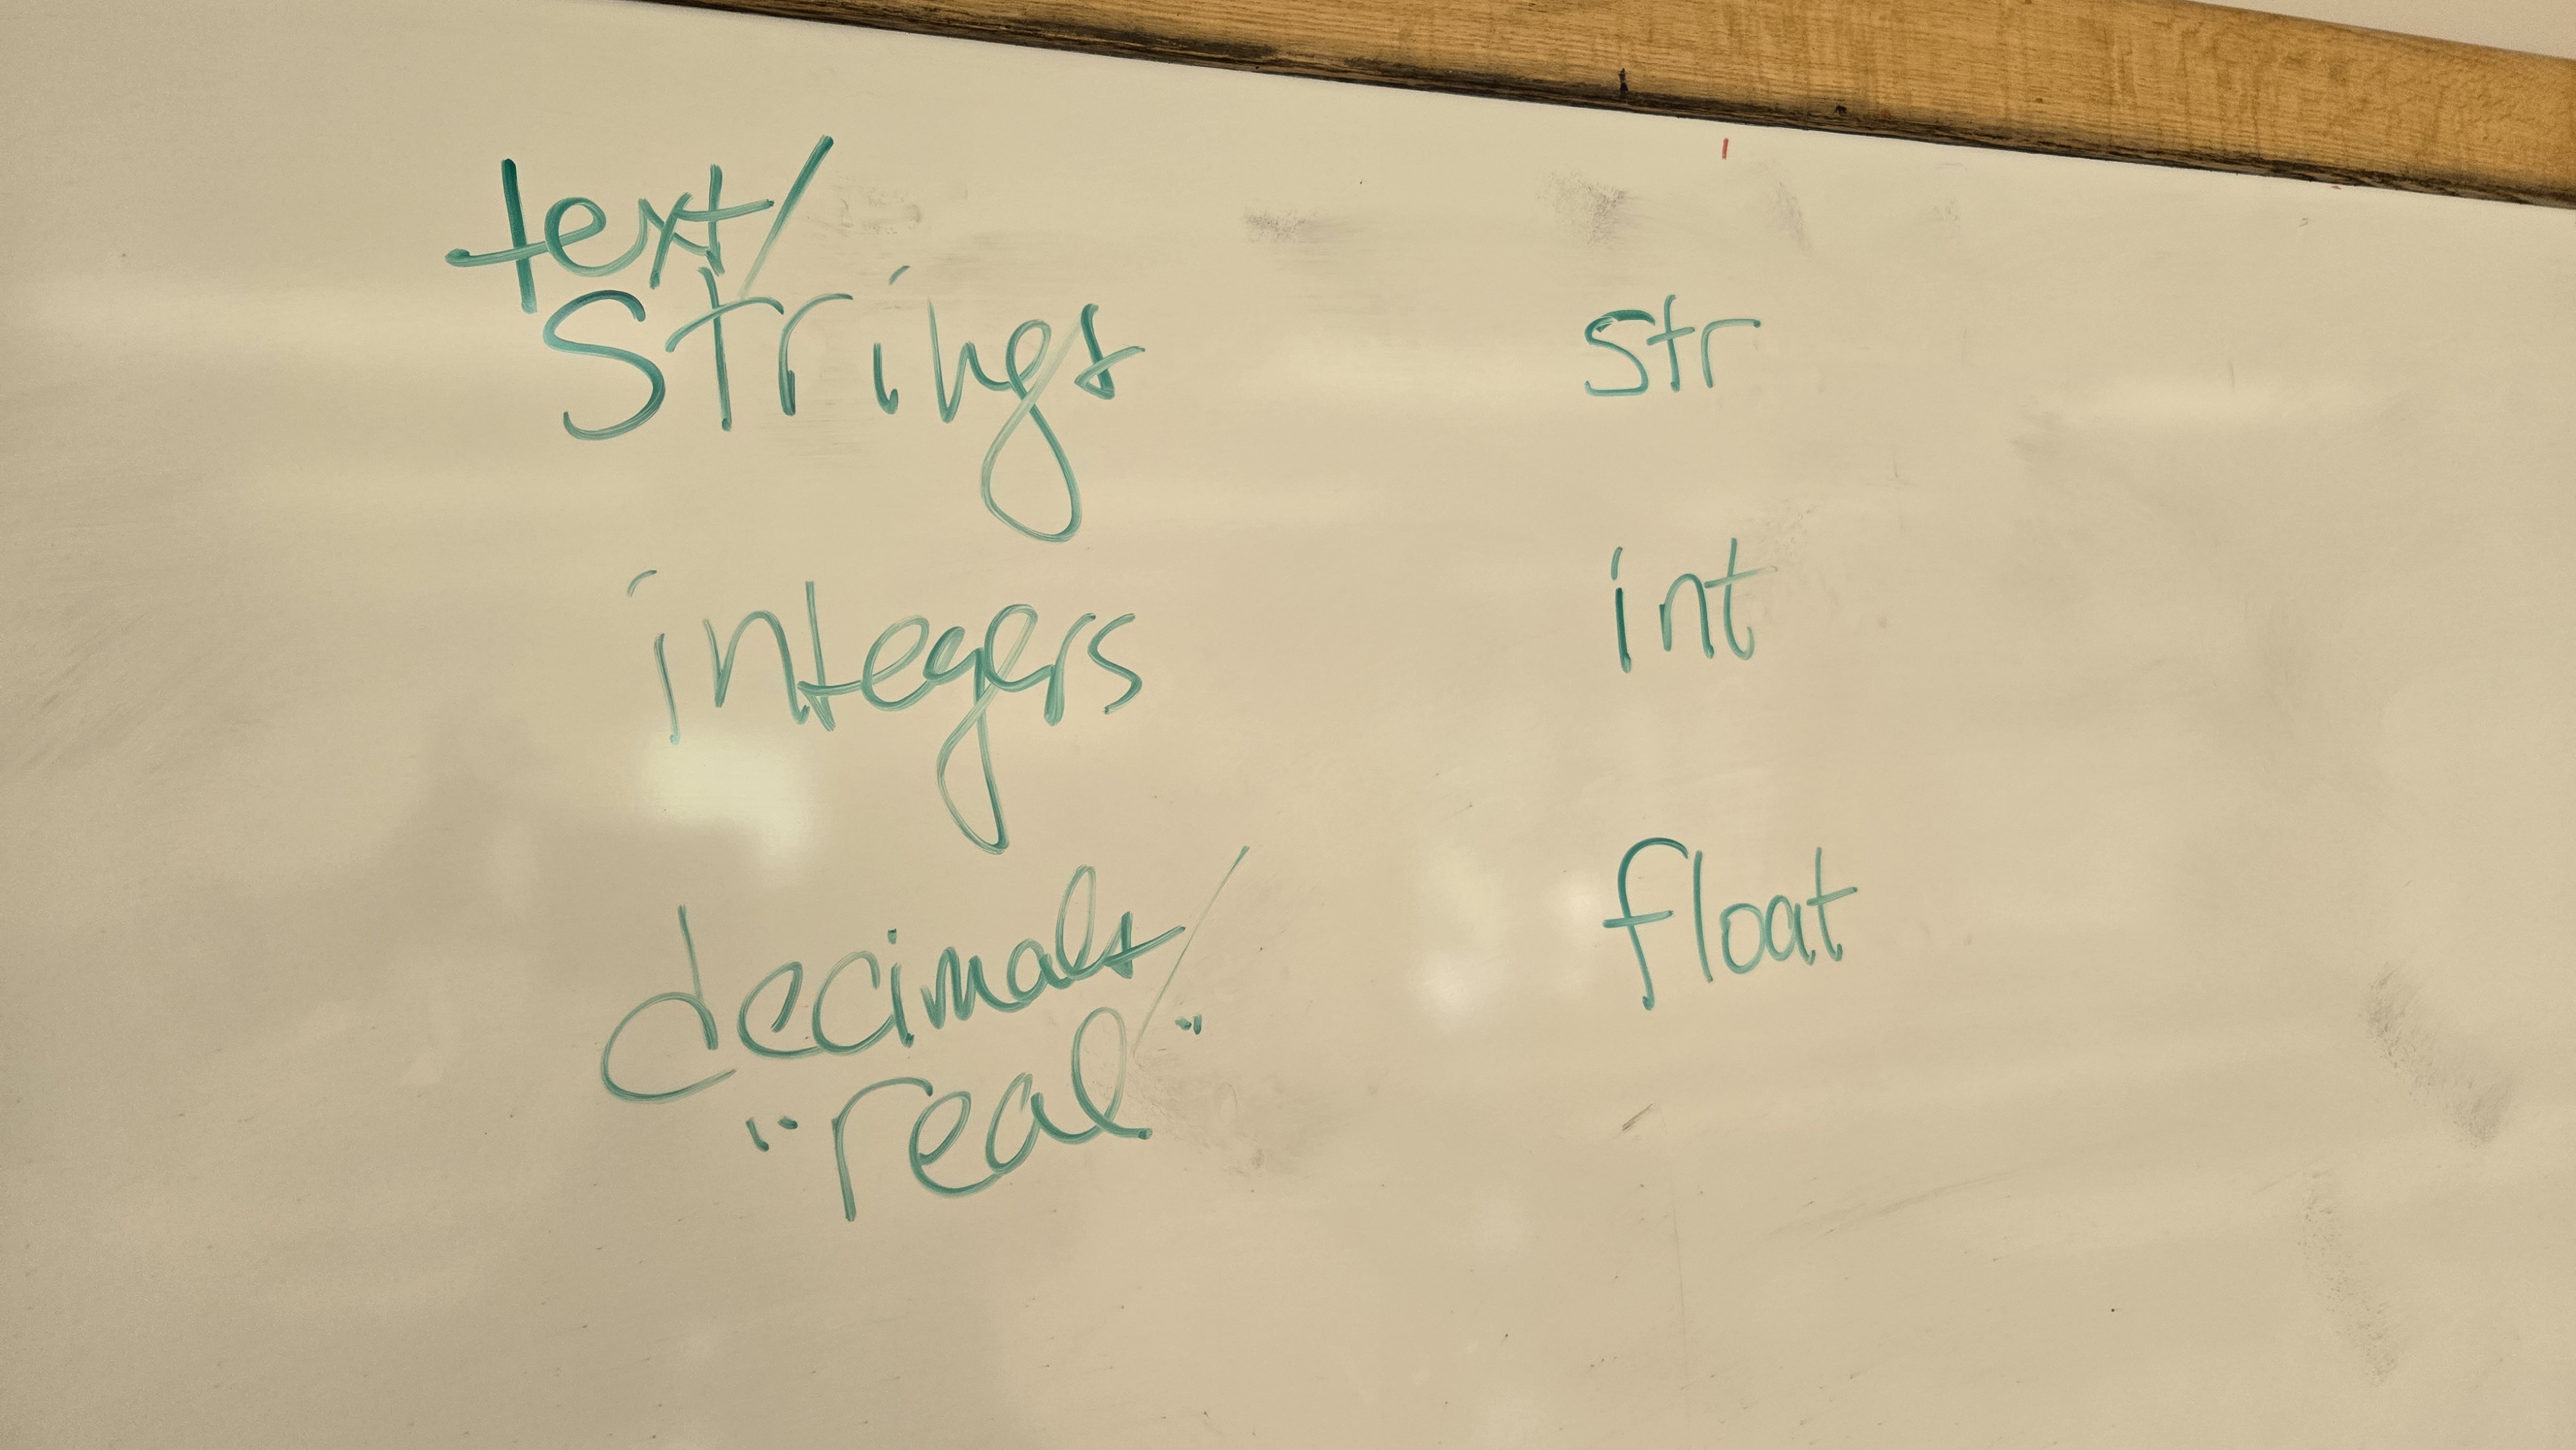 text/
Strings str
integers int
decimals/ float
"real"